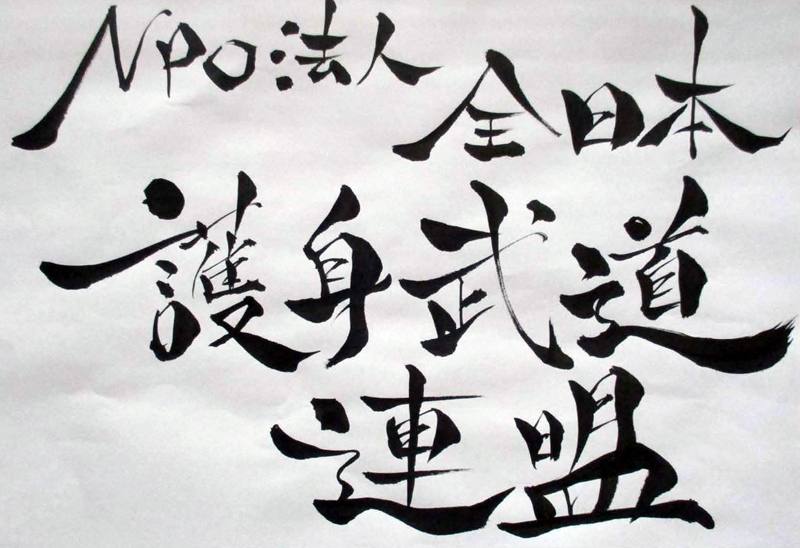 NPO法人
全日本
護身武道
連盟